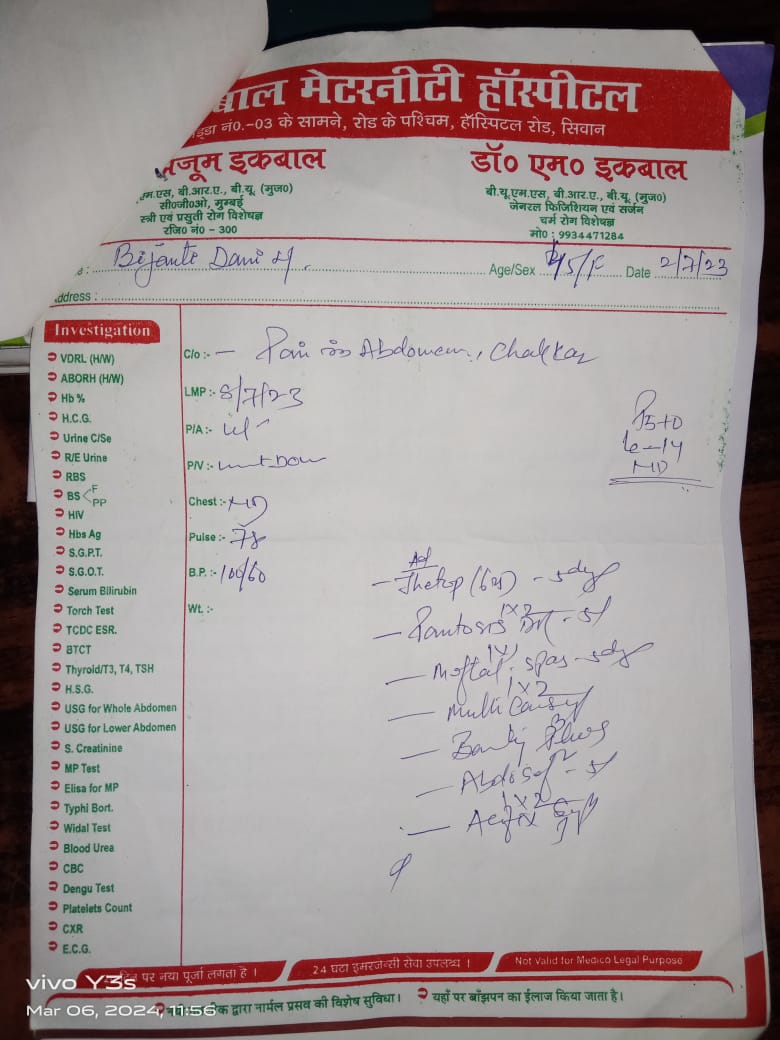 बाल मेटरनीटी हॉस्पीटल
नं०.-03 के सामने, रोड के पश्चिम, हॉस्पिटल रोड, सिवान
इकबाल
डॉ० एम० इकबाल
बी.आर.ए., बी.यू. (मुज०)
सी०जी०ओ, मुम्बई
स्त्री एवं प्रसुती रोग विशेषज्ञ
रजि० नं० - 300
बी.यू.एम.एस, बी.आर.ए., बी.यू. (मुज०)
जेनरल फिजिशियन एवं सर्जन
चर्म रोग विशेषज्ञ
मो० : 9934471284
Age/Sex 45/F Date 2/7/23
ddress :
Investigation
VDRL (H/W)
ABORH (H/W)
Hb %
H.C.G.
Urine C/Se
R/E Urine
RBS
BS F PP
HIV
Hbs Ag
S.G.P.T.
S.G.O.T.
Serum Bilirubin
Torch Test
TCDC ESR.
BTCT
Thyroid/T3, T4, TSH
H.S.G.
USG for Whole Abdomen
USG for Lower Abdomen
S. Creatinine
MP Test
Elisa for MP
Typhi Bort.
Widal Test
Blood Urea
CBC
Dengu Test
Platelets Count
CXR
E.C.G.
C/o :- Pain in Abdomen, Chakkar
LMP :- 8/7/23
P/A :-
P/V :-
Chest :-
Pulse :- 78
B.P. :- 100/60
Wt. :-
P5+0
6-14
Adv
- 5 day
1x2
1x1
- Meftal - spas - 5 day
1x2
1x2
पर नया पूर्जा लगता है ।
24 घंटा इमरजेन्सी सेवा उपलब्ध ।
Not Valid for Medico Legal Purpose
द्वारा नार्मल प्रसव की विशेष सुविधा।
यहाँ पर बाँझपन का ईलाज किया जाता है।
vivo Y3s
Mar 06, 2024, 11:56